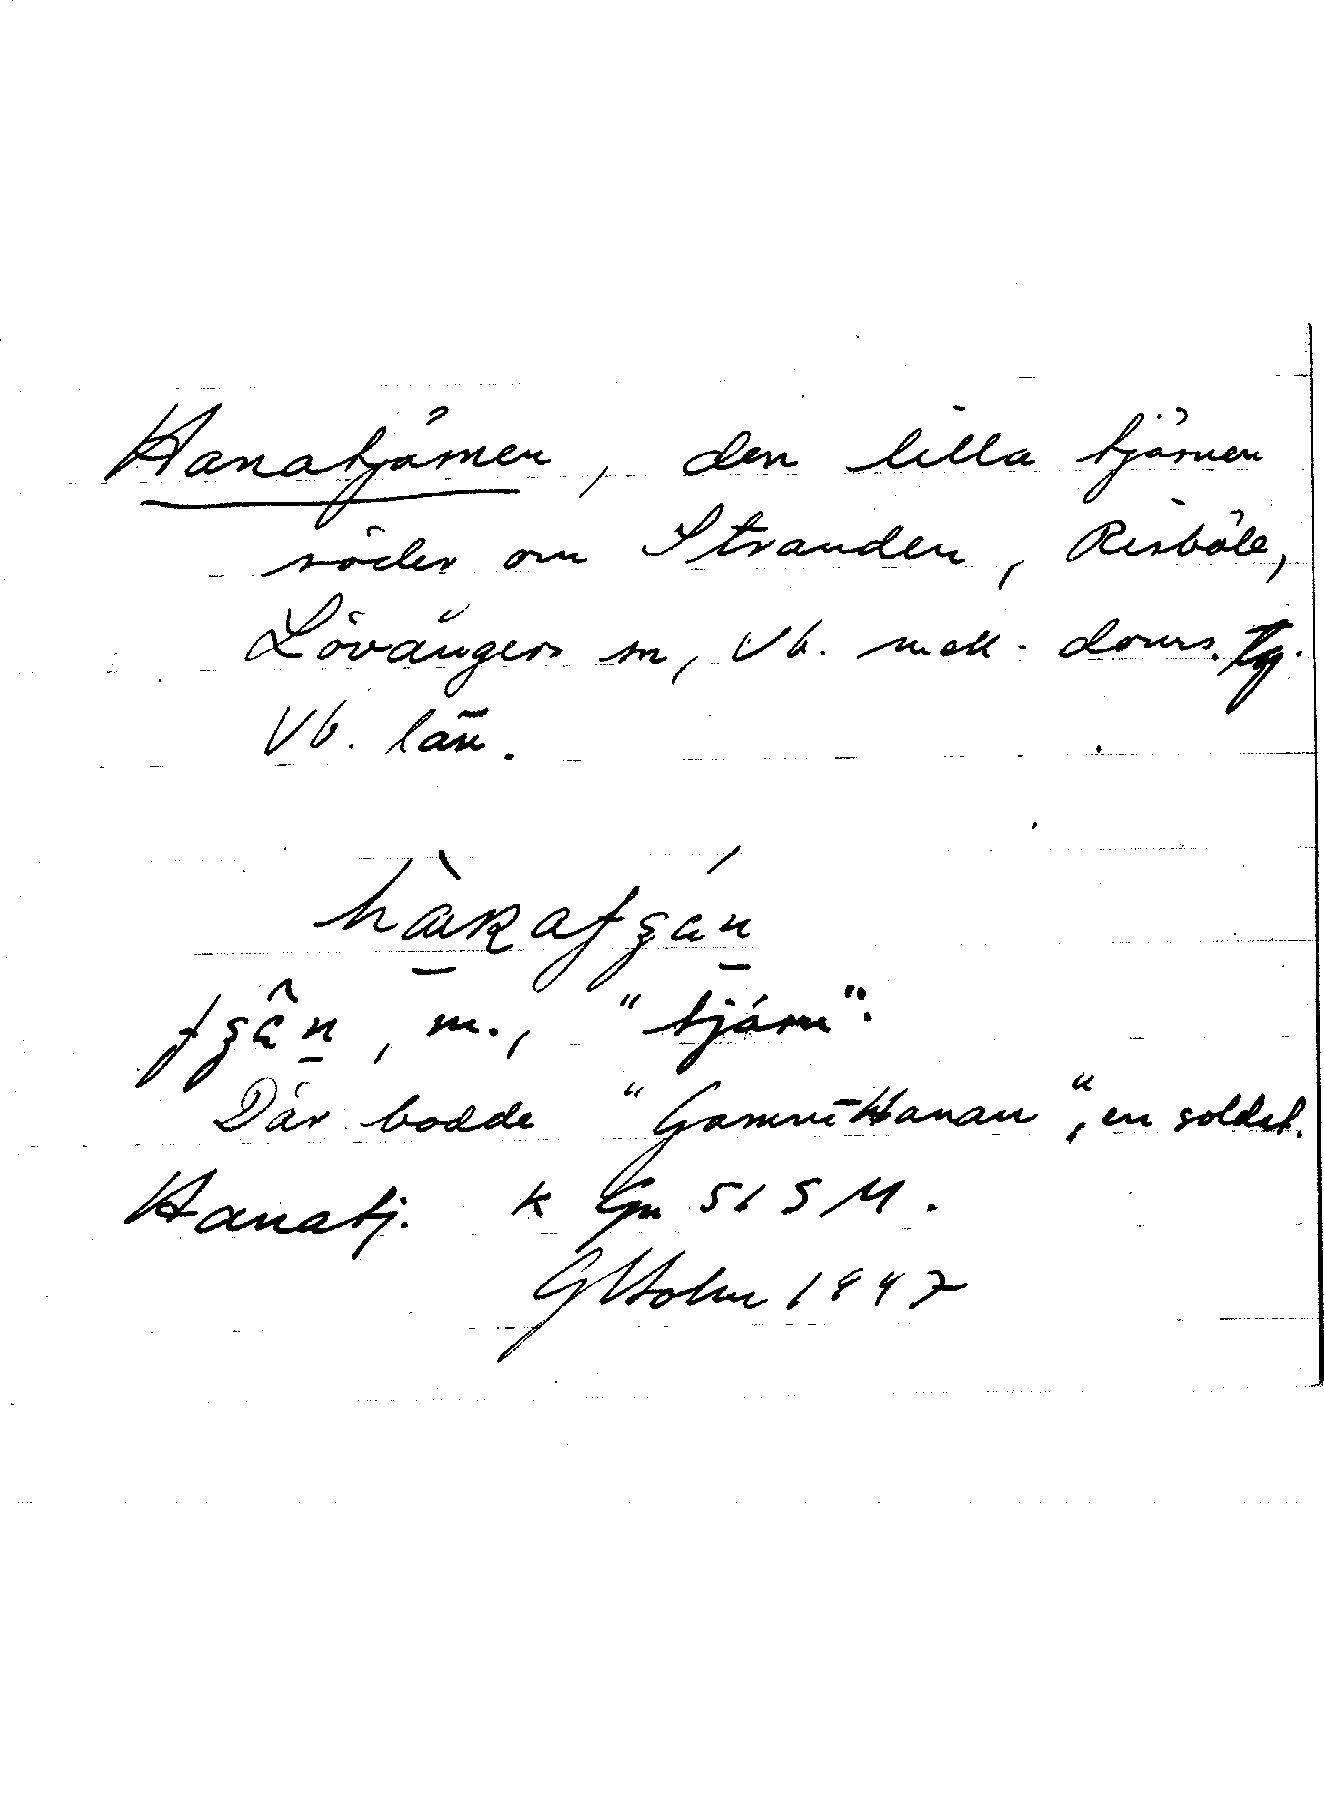 Hanatjärnen, den lilla tjärnen
söder om Stranden, Risböle,
Lövångers sn, Vb. mell. doms. tg.
Vb. län.
m., "tjärn".
Där bodde "Gammhanan", en soldat.
Hanatj. K Gn 51 5 M.
G Holm 1947